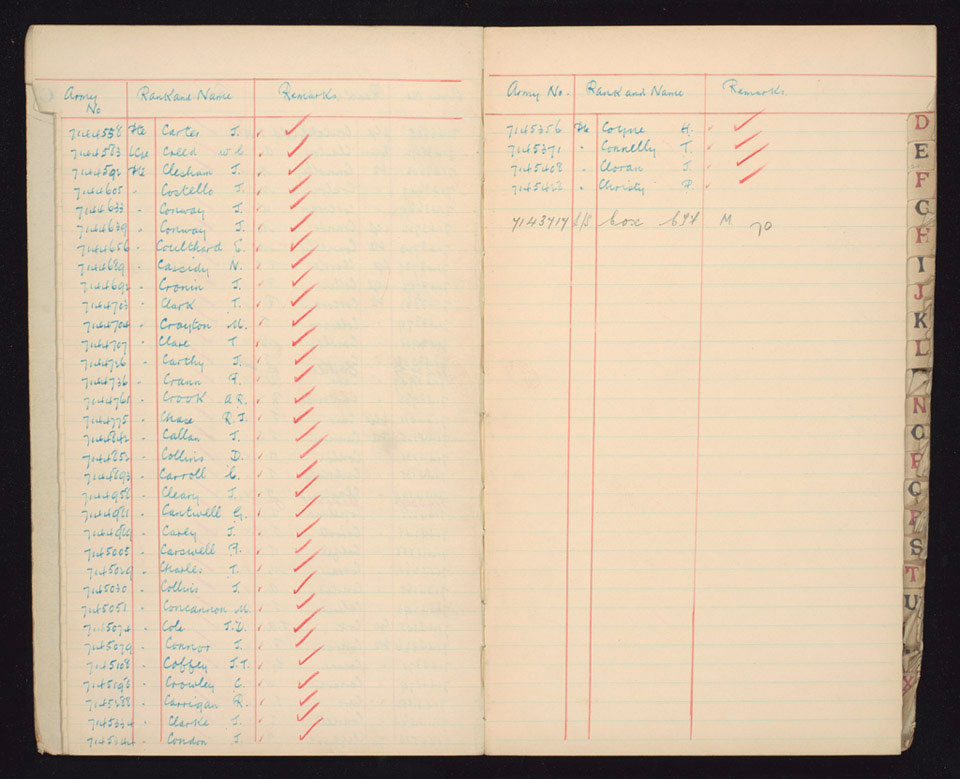 Army No Rank and Name Remarks
7144558 Pte Carter J.
7144583 L/Cpl Creed W C.
7144592 Pte Clesham J.
7144605 - Costello J.
7144633 - Conway J.
7144639 - Conway J.
7144656 - Coulthard E.
7144689 - Cassidy N.
7144692 - Cronin J.
7144703 - Clark T.
7144704 - Crayton M.
7144707 - Clare T
7144726 - Carthy J.
7144736 - Crann P.
7144760 - Crook A R.
7144775 - Chase R. J.
7144842 - Callan J.
7144852 - Collins D.
7144893 - Carroll C.
7144958 - Cleary J.
7144981 - Cantwell G.
7144989 - Carey J.
7145005 - Carswell P.
7145029 - Charles T.
7145030 - Collins J.
7145051 - Concannon M.
7145074 - Cole J.
7145079 - Connor J.
7145108 - Coffey J.T.
7145198 - Crowley C.
7145288 - Carrigan R.
7145334 - Clarke J.
- Condon J.
Army No. Rank and Name Remarks
7145356 Pte Coyne H.
7145371 - Connelly T.
7145408 - Cloran J.
7145422 - Christy P.
7143717 Cox M 70
D
E
F
G
H
I
J
K
L
N
O
P
Q
R
S
T
U